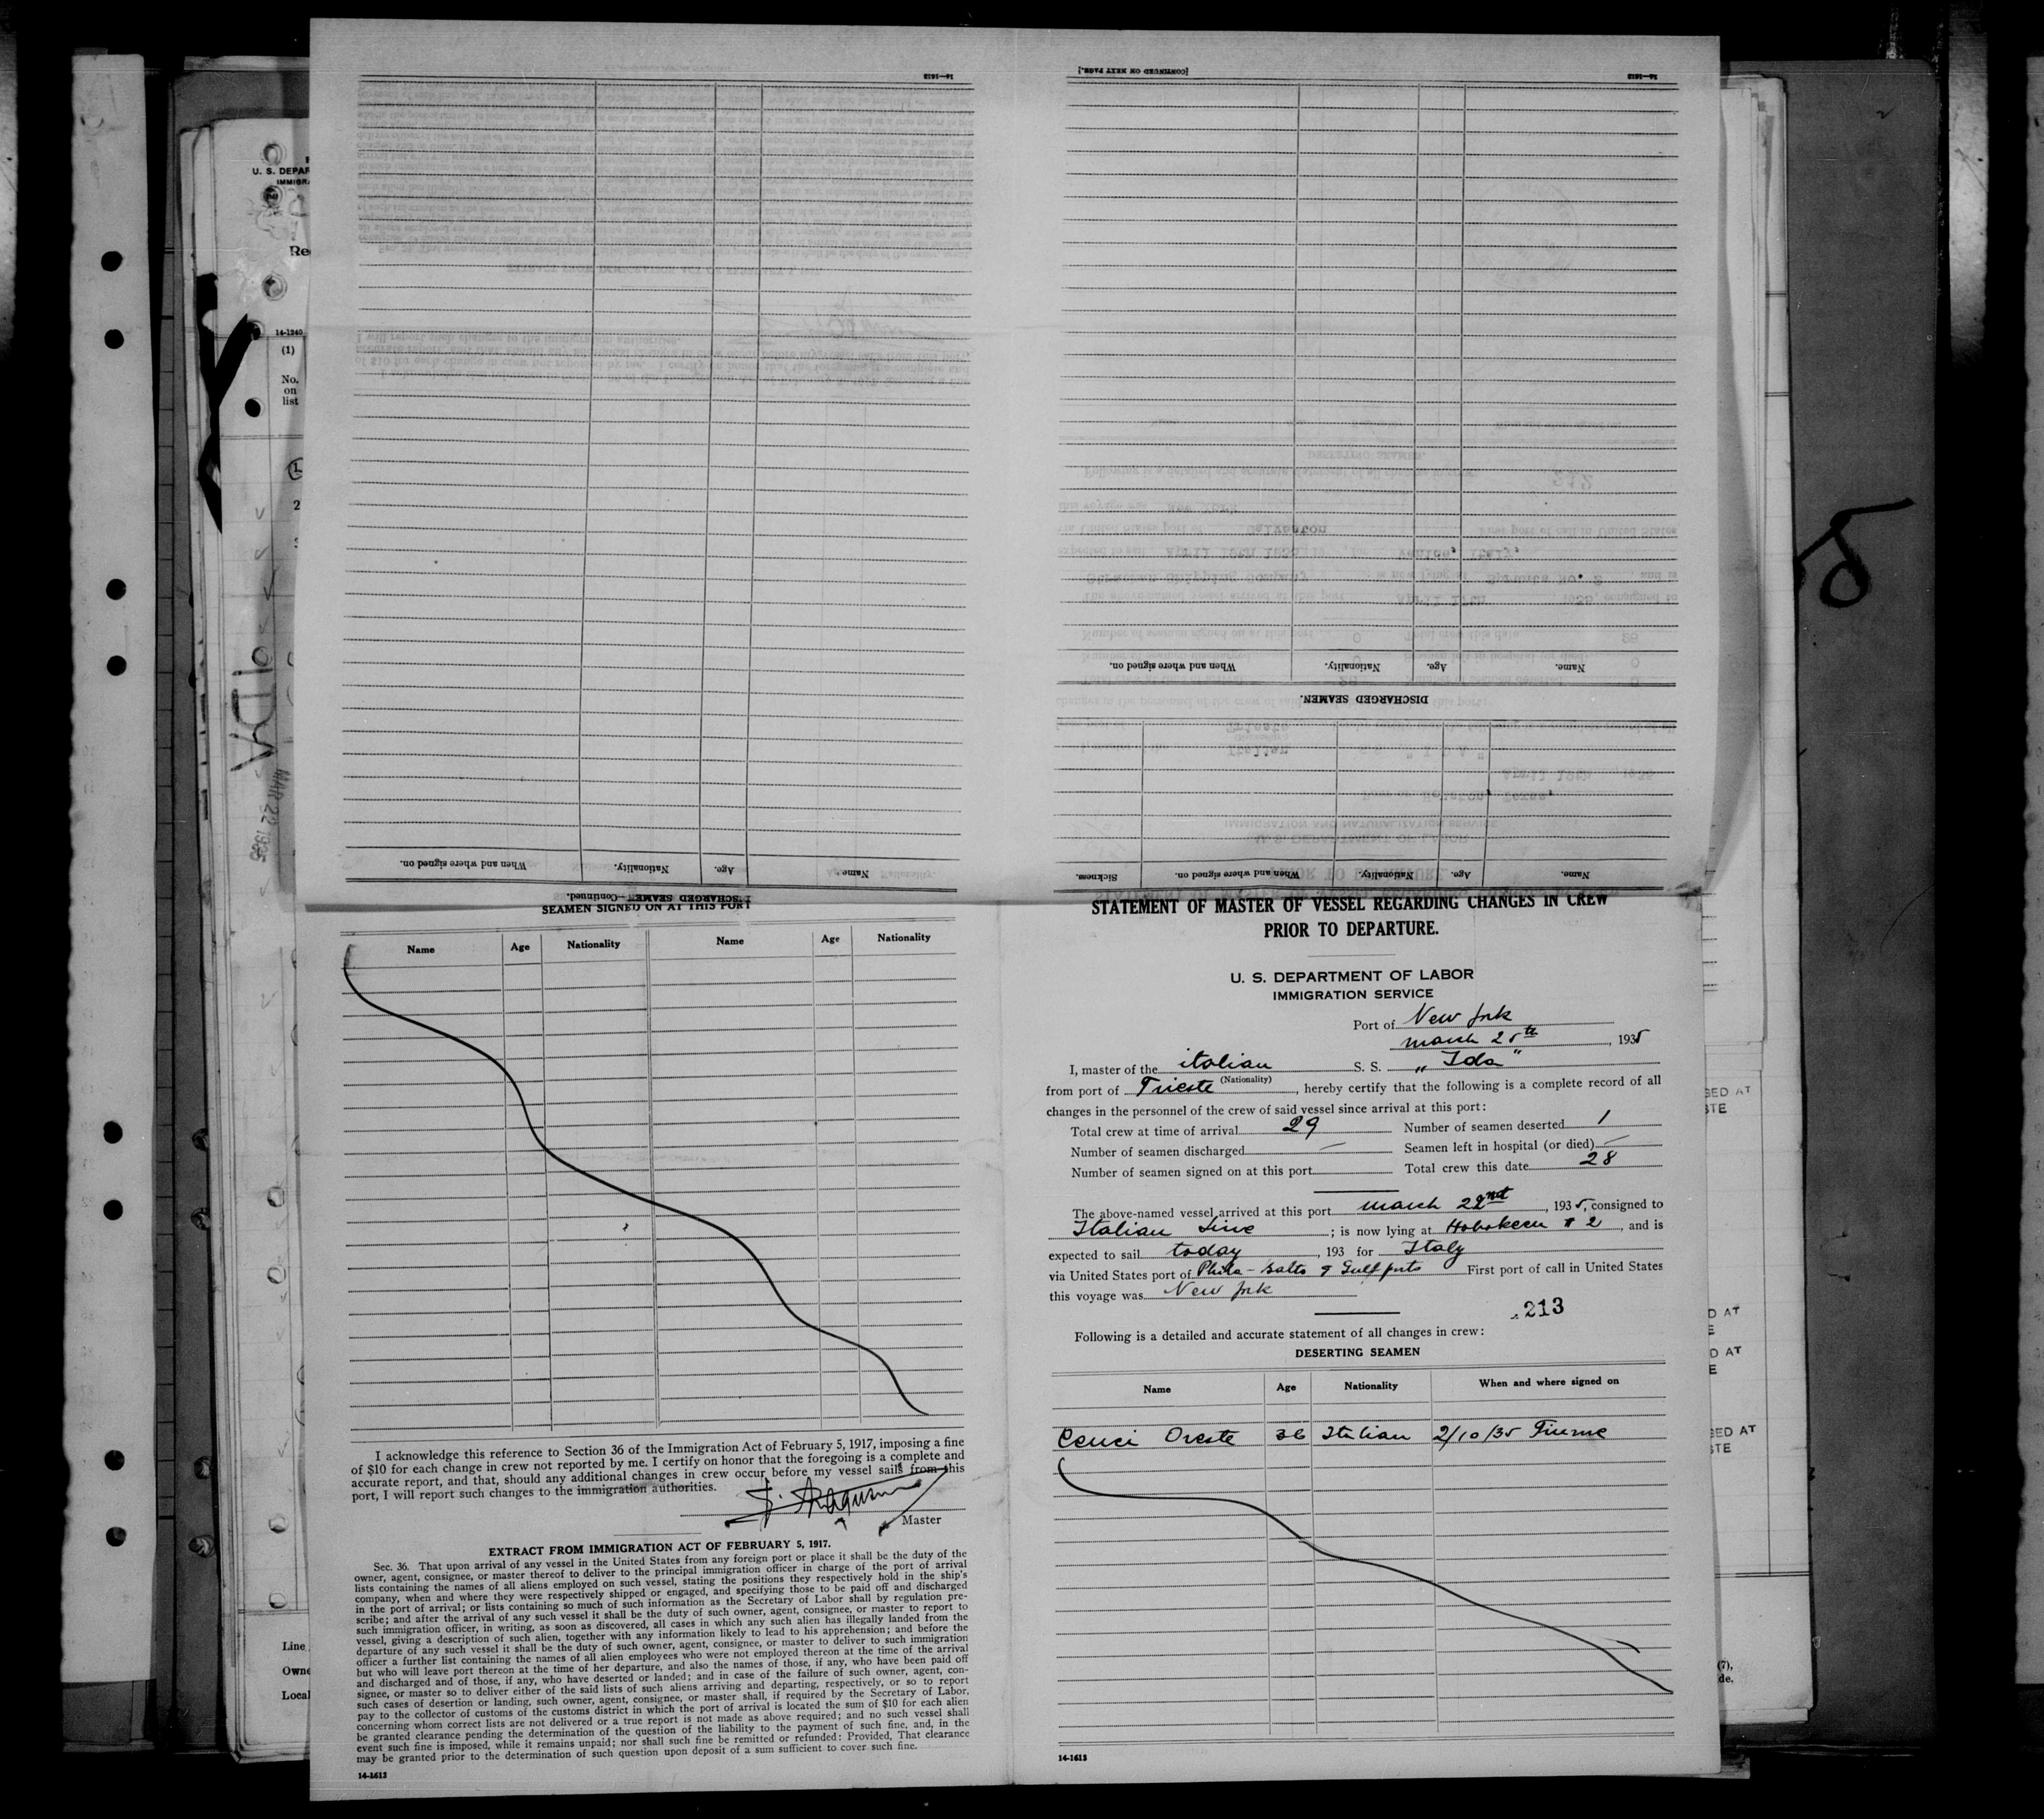 [CONTINUED ON NEXT PAGE.]
14—1613
14—1613
U. S. DEPAR
IMMIGRA
Re
14-1240
(1)
No.
on
list
2
IDA
MAR 22 1935
DISCHARGED SEAMEN.
Name. Age. Nationality. When and where signed on.
Name. Age. Nationality. When and where signed on. Sickness.
DISCHARGED SEAMEN—Continued.
Name. Age. Nationality. When and where signed on.
SEAMEN SIGNED ON AT THIS PORT
Name Age Nationality Name Age Nationality
I acknowledge this reference to Section 36 of the Immigration Act of February 5, 1917, imposing a fine
of $10 for each change in crew not reported by me. I certify on honor that the foregoing is a complete and
accurate report, and that, should any additional changes in crew occur before my vessel sails from this
port, I will report such changes to the immigration authorities.
Master
EXTRACT FROM IMMIGRATION ACT OF FEBRUARY 5, 1917.
Sec. 36. That upon arrival of any vessel in the United States from any foreign port or place it shall be the duty of the
owner, agent, consignee, or master thereof to deliver to the principal immigration officer in charge of the port of arrival
lists containing the names of all aliens employed on such vessel, stating the positions they respectively hold in the ship's
company, when and where they were respectively shipped or engaged, and specifying those to be paid off and discharged
in the port of arrival; or lists containing so much of such information as the Secretary of Labor shall by regulation pre-
scribe; and after the arrival of any such vessel it shall be the duty of such owner, agent, consignee, or master to report to
such immigration officer, in writing, as soon as discovered, all cases in which any such alien has illegally landed from the
vessel, giving a description of such alien, together with any information likely to lead to his apprehension; and before the
departure of any such vessel it shall be the duty of such owner, agent, consignee, or master to deliver to such immigration
officer a further list containing the names of all alien employees who were not employed thereon at the time of the arrival
but who will leave port thereon at the time of her departure, and also the names of those, if any, who have been paid off
and discharged and of those, if any, who have deserted or landed; and in case of the failure of such owner, agent, con-
signee, or master so to deliver either of the said lists of such aliens arriving and departing, respectively, or so to report
such cases of desertion or landing, such owner, agent, consignee, or master shall, if required by the Secretary of Labor,
pay to the collector of customs of the customs district in which the port of arrival is located the sum of $10 for each alien
concerning whom correct lists are not delivered or a true report is not made as above required; and no such vessel shall
be granted clearance pending the determination of the question of the liability to the payment of such fine, and, in the
event such fine is imposed, while it remains unpaid; nor shall such fine be remitted or refunded: Provided, That clearance
may be granted prior to the determination of such question upon deposit of a sum sufficient to cover such fine.
14-1613
STATEMENT OF MASTER OF VESSEL REGARDING CHANGES IN CREW
PRIOR TO DEPARTURE.
U. S. DEPARTMENT OF LABOR
IMMIGRATION SERVICE
Port of New York
march 25th, 1935
I, master of the italian S. S. "Ida"
(Nationality)
from port of Trieste, hereby certify that the following is a complete record of all
changes in the personnel of the crew of said vessel since arrival at this port:
Total crew at time of arrival 29 Number of seamen deserted 1
Number of seamen discharged — Seamen left in hospital (or died) —
Number of seamen signed on at this port Total crew this date 28
The above-named vessel arrived at this port march 22nd, 1935, consigned to
Italian Line; is now lying at Hoboken # 2, and is
expected to sail today, 193 for Italy
via United States port of Phila - Balto & Gulf ports First port of call in United States
this voyage was New York
213
Following is a detailed and accurate statement of all changes in crew:
DESERTING SEAMEN
Name Age Nationality When and where signed on
Cenci Oreste 36 Italian 2/10/35 Fiume
14-1613
Line
Owne
Local
GED AT
STE
D AT
E
D AT
E
GED AT
STE
(7),
de.